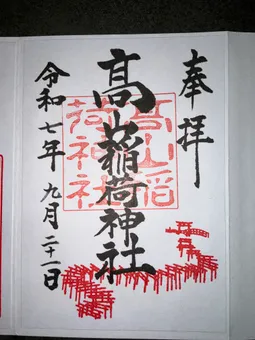 奉拝
髙山稲荷神社
令和七年九月二十一日
髙山稲
荷神社